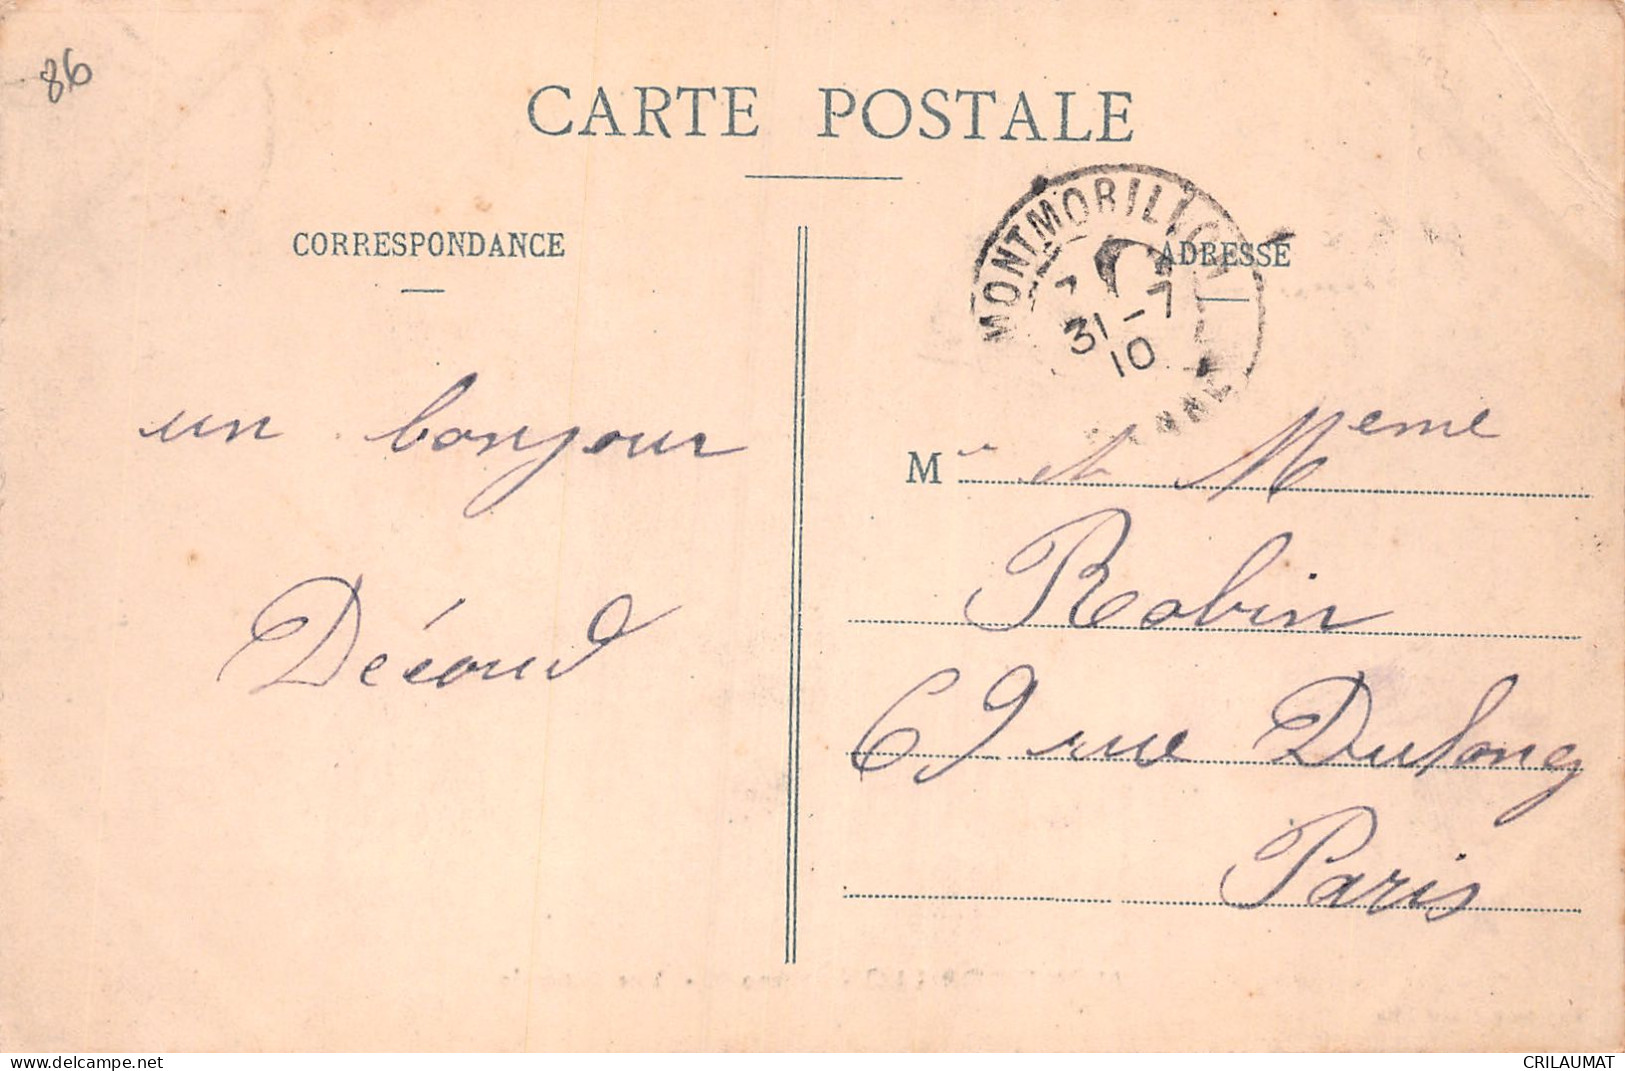 86
CARTE POSTALE
CORRESPONDANCE
ADRESSE
MONTMORILLON
31-7
10
un bonjour
M et Meme
Robin
Découd
69 rue Dulong
Paris
www.delcampe.net
CRILAUMAT